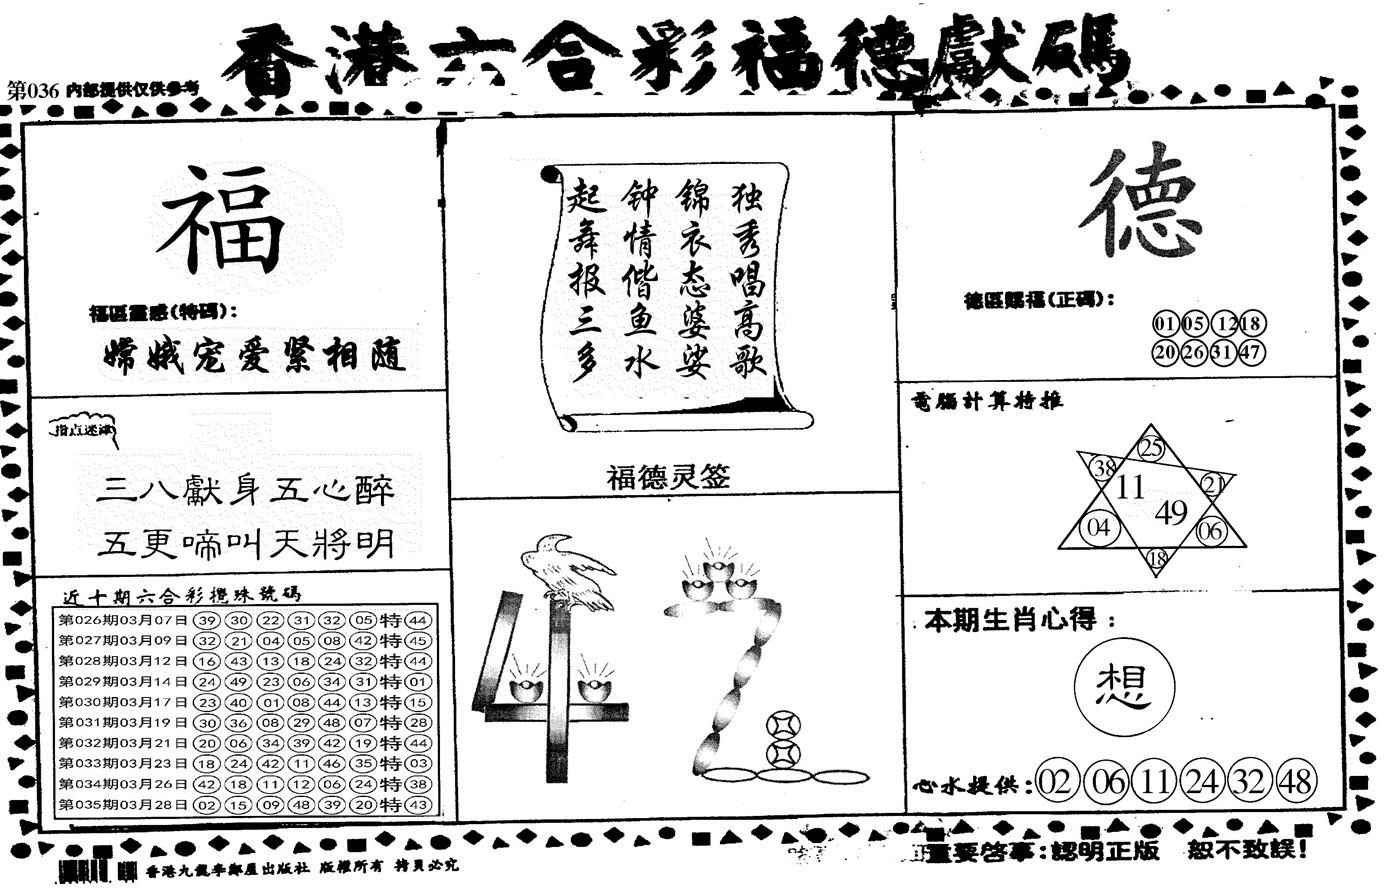 香港六合彩福德獻碼
第036 内部提供仅供参考
福
福區靈感(特碼):
嫦娥宠爱紧相随
指点迷津
三八獻身五心醉
五更啼叫天將明
近十期六合彩攪珠號碼
第026期03月07日 39 30 22 31 32 05 特 44
第027期03月09日 32 21 04 05 08 42 特 45
第028期03月12日 16 43 13 18 24 32 特 44
第029期03月14日 24 49 23 06 34 31 特 01
第030期03月17日 23 40 01 08 44 13 特 15
第031期03月19日 30 36 08 29 48 07 特 28
第032期03月21日 20 06 34 39 42 19 特 44
第033期03月23日 18 24 42 11 46 35 特 03
第034期03月26日 42 18 11 12 06 24 特 38
第035期03月28日 02 15 09 48 39 20 特 43
独秀唱高歌
锦衣态婆娑
钟情偕鱼水
起舞报三多
福德灵签
德
德區賜福(正碼):
01 05 12 18
20 26 31 47
電腦計算特推
25
38
11
21
49
04
06
18
本期生肖心得:
想
心水提供: 02 06 11 24 32 48
香港九龍李鄭屋出版社 版權所有 拷貝必究
重要啓事:認明正版 恕不致誤!